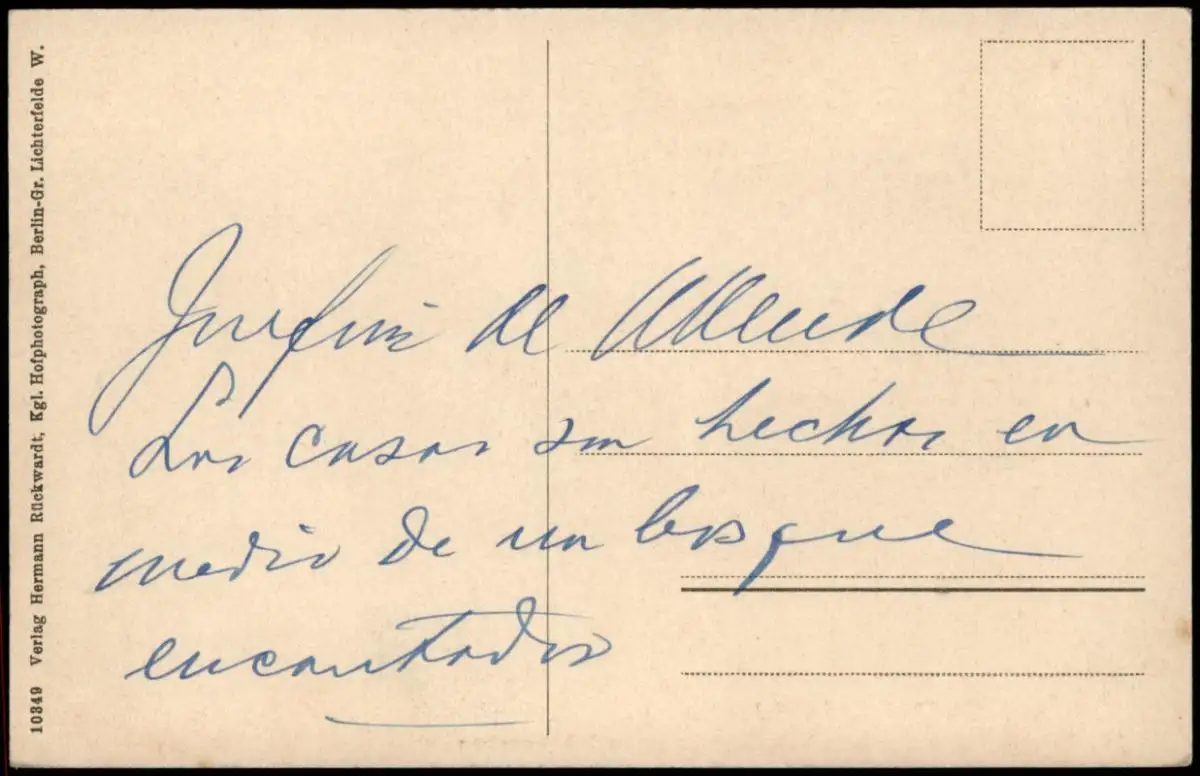 10349 Verlag Hermann Rückwardt, Kgl. Hofphotograph, Berlin-Gr. Lichterfelde W.
de Allende
Las casas son hechas en
medio de un bosque
encantador